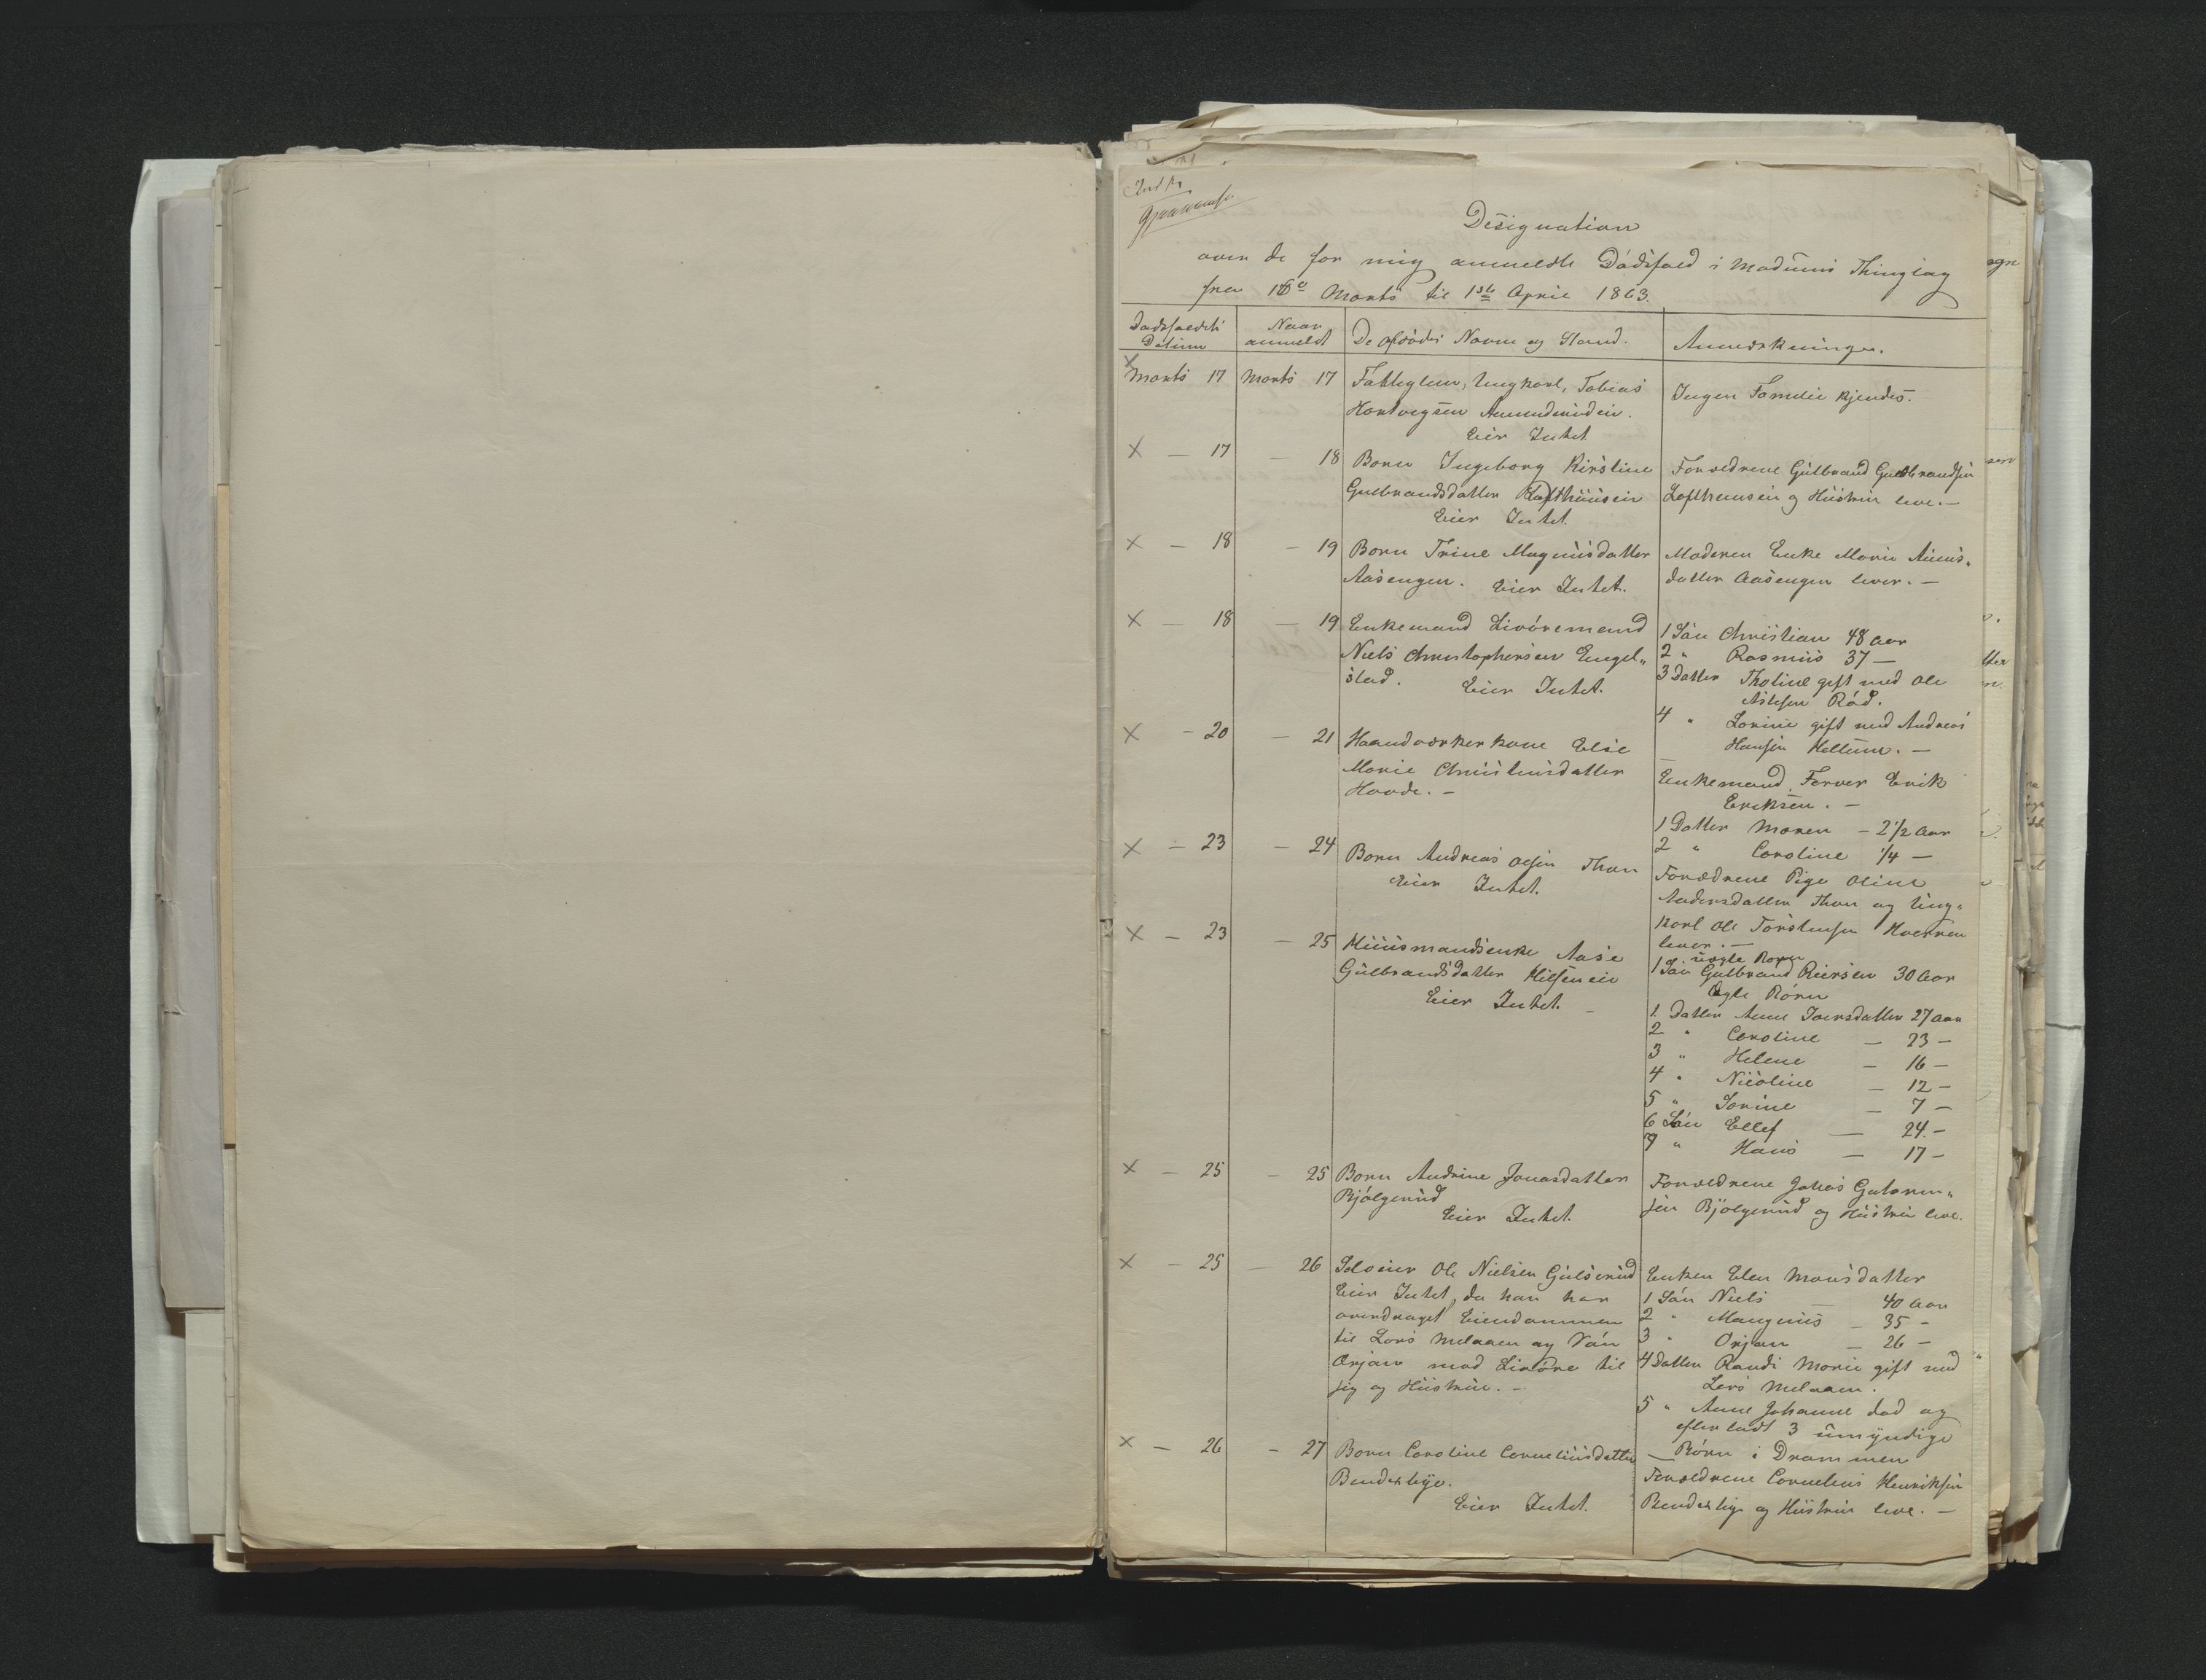 Designation
over de for mig anmeldte Dödsfald i Modums Thinglag
fra 16de Marts til 1ste April 1863.
Dödsfaldets Datum
Naar anmeldt
De afdödes Navne og Stand.
Anmærkninger.
Marts 17 Marts 17 Fattiglem, Ungkarl, Tobias
Hartvigsen Amundrudeie.
Eier Intet
Ingen Familie kjendes.
× — 17 — 18 Barn Ingeborg Kirstine
Gulbrandsdatter Lofthuuseie
Eier Intet.
Forældrene Gulbrand Gulbrandsen
Lofthuuseie og Hustrue leve. —
× — 18 — 19 Barn Trine Magnusdatter
Aasengen. Eier Intet.
Moderen Enke Marie
datter Aasengen lever. —
× — 18 — 19 Enkemand Livöremand
Niels Christophersen Engel„
stad. Eier Intet.
1 Sön Christian 48 Aar
2 " Rasmus 37 —
3 Datter Tholine gift med Ole
Röd.
4 " Lorine gift med Andreas
Hansen Hellum. —
× — 20 — 21 Haandværkerkone Else
Marie Christensdatter
Hovde. —
Enkemand Farver Erik
Eriksen. —
1 Datter Maren — 2 1/2 Aar
2 " Caroline 1/4 —
× — 23 — 24 Barn Andreas Olsen Thon
Eier Intet.
Forældrene Pige Oline
Andersdatter Thon og Ung„
karl Ole Torstensen
lever. —
× — 23 — 25 Huusmandsenke Aase
Gulbrandsdatter
Eier Intet. —
uægte Barn
1 Sön Gulbrand Reiersen 30 Aar
Ægte Börn
1. Datter Anne Iversdatter 27 Aar
2 " Caroline — 23 —
3 " Helene — 16 —
4 " Nicoline — 12 —
5 " Lorine — 7 —
6 Sön Ellef — 24. —
7 " Hans — 17 —
× — 25 — 25 Barn Andrine Jonasdatter
Bjölgerud
Eier Intet.
Forældrene Johas Guttorm„
sen Bjölgerud og Hustrue leve.
× — 25 — 26 Selveier Ole Nielsen Gulsrud
Eier Intet, da han har
overdraget Eiendommen
til Lars Melaaen og Sön
Ørjan mod Livöre til
sig og Hustrue. —
Enken Elen Monsdatter
1 Sön Niels 40 Aar
2 " Maugnus — 35 —
3 " Orjan — 26 —
4 Datter Randi Marie gift med
Lars Melaaen.
5 " Anne Johanne död og
efterladt 3 umyndige
— Börn i Drammen
× — 26 — 27 Barn Caroline Corneliusdatter
Bendixbye.
Eier Intet.
Forældrene Cornelius Henriksen
Bendixbye og Hustrue leve. —